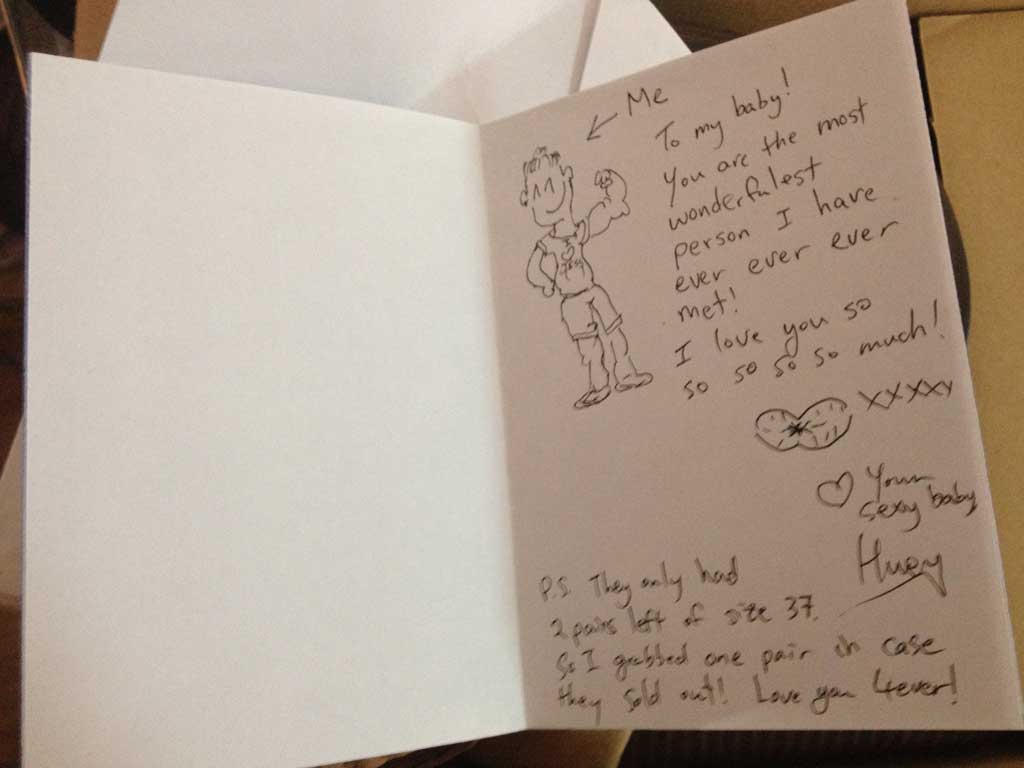 Me
To my baby!
You are the most
wonderfulest
person I have
ever ever ever ever
met!
I love you so
so so so so much!
XXXXX
Your
sexy baby
Huey
P.S. They only had
2 pairs left of size 37.
So I grabbed one pair in case
they sold out! Love you 4ever!